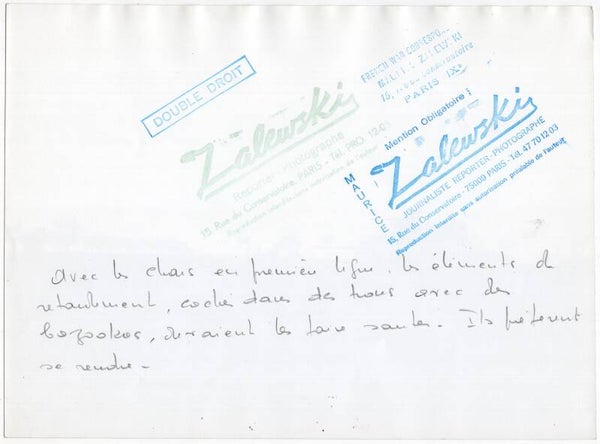 DOUBLE DROIT
FRENCH WAR CORRESPO
ZALEWSKI
15, Rue Conservatoire
PARIS IXe
Zalewski
Reporter Photographe
15, Rue du Conservatoire, PARIS - Tél. PRO 12-03
Reproduction interdite sans autorisation de l'auteur
Mention Obligatoire :
MAURICE
Zalewski
JOURNALISTE REPORTER - PHOTOGRAPHE
15, Rue du Conservatoire - 75009 PARIS - Tél. 47 70 12 03
Reproduction interdite sans autorisation préalable de l'auteur
avec les chars en première ligne, les éléments de
retardement, cachés dans des trous avec des
bazookas, devraient les faire sauter. Ils préfèrent
se rendre -